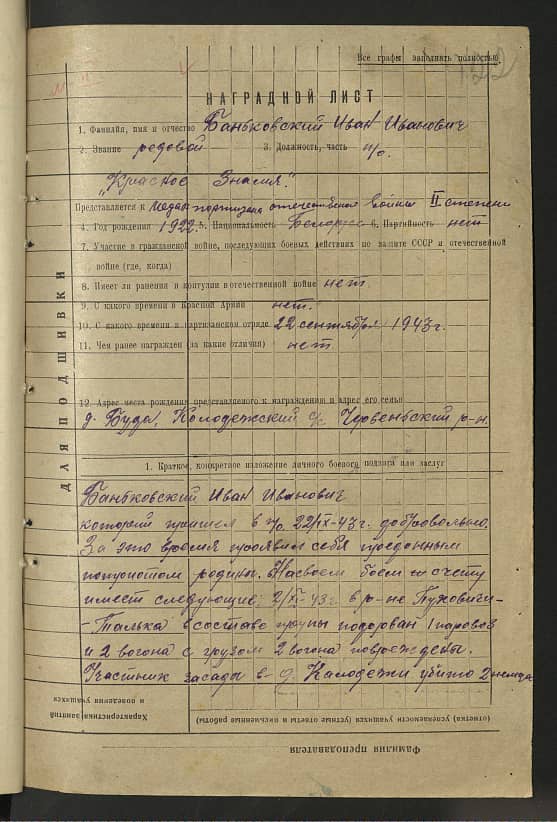 Все графы заполнять полностью
122
НАГРАДНОЙ ЛИСТ
1. Фамилия, имя и отчество Баньковский Иван Иванович
2. Звание редовой 3. Должность, часть п/о.
„Красное Знамя."
Представляется к медали партизана отечественной войны II степени
4. Год рождения 1922. 5. Национальность Белорус 6. Партийность нет
7. Участие в гражданской войне, последующих боевых действиях по защите СССР и отечественной
войне (где, когда)
8. Имеет ли ранения и контузии в отечественной войне нет.
9. С какого времени в Красной Армии нет.
10. С какого времени в партизанском отряде 22 сентября 1943 г.
11. Чем ранее награжден (за какие отличия) нет
12. Адрес места рождения представляемого к награждению и адрес его семьи
д. Буда, Колодежский с/с Червеньский р-н.
1. Краткое, конкретное изложение личного боевого подвига или заслуг
Баньковский Иван Иванович
который пришел в п/о. 22/IX-43 г. добровольно.
За это время проявил себя преданным
патриотом родины. На своем боем счету
имеет следующие; 2/XI-43 г. в р-не Пуховичи-
-Талька в составе групы подорван 1 паровоз
и 2 вогона с грузом 2 вогона повреждены.
Участник засады в д. Калодежи убито 2 немца
ДЛЯ ПОДШИВКИ
Характеристика занятий и поведения учащихся
(отметка) (успеваемости учащихся) (устные ответы и письменные работы)
Фамилия преподавателя